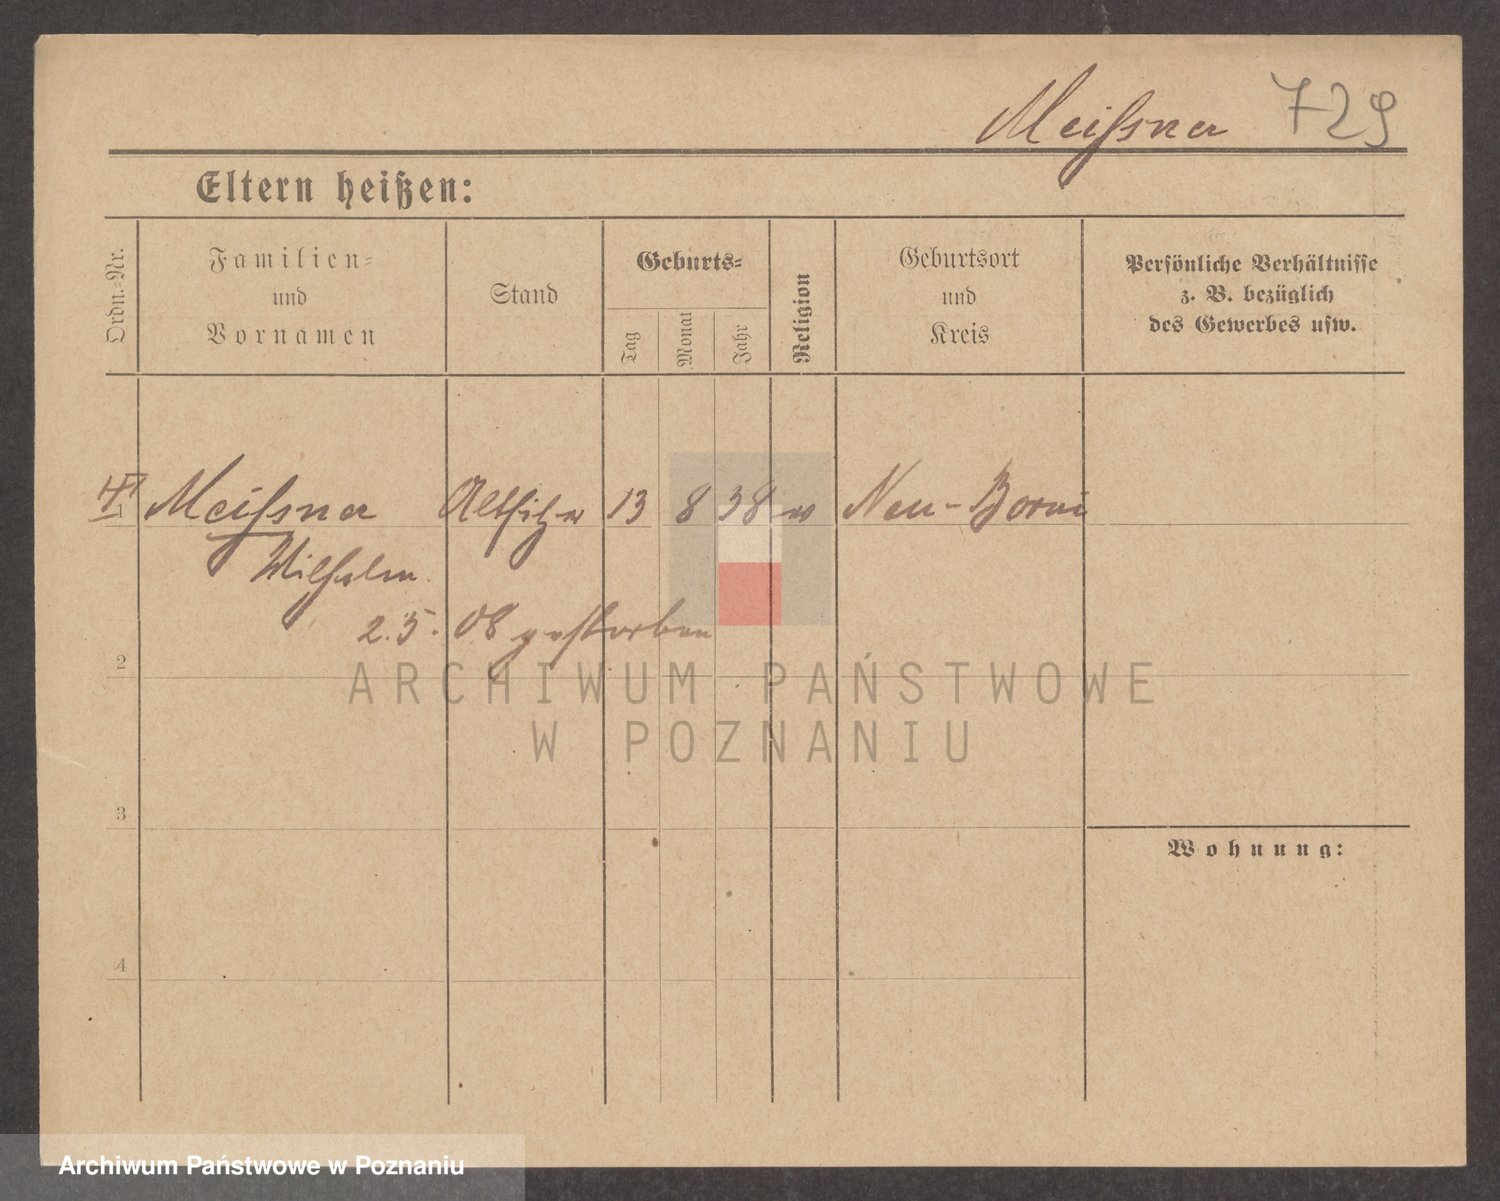 Meißner 729
Eltern heißen:
Ordn.-Nr.
Familien-
und
Vornamen
Stand
Geburts-
Tag
Monat
Jahr
Religion
Geburtsort
und
Kreis
Persönliche Verhältnisse
z. B. bezüglich
des Gewerbes usw.
1 Meißner Altsitzer 13 8 38 Neu-Borui
Wilhelm
2.5. 08 gestorben
2
ARCHIWUM PAŃSTWOWE
W POZNANIU
3
Wohnung:
4
Archiwum Państwowe w Poznaniu